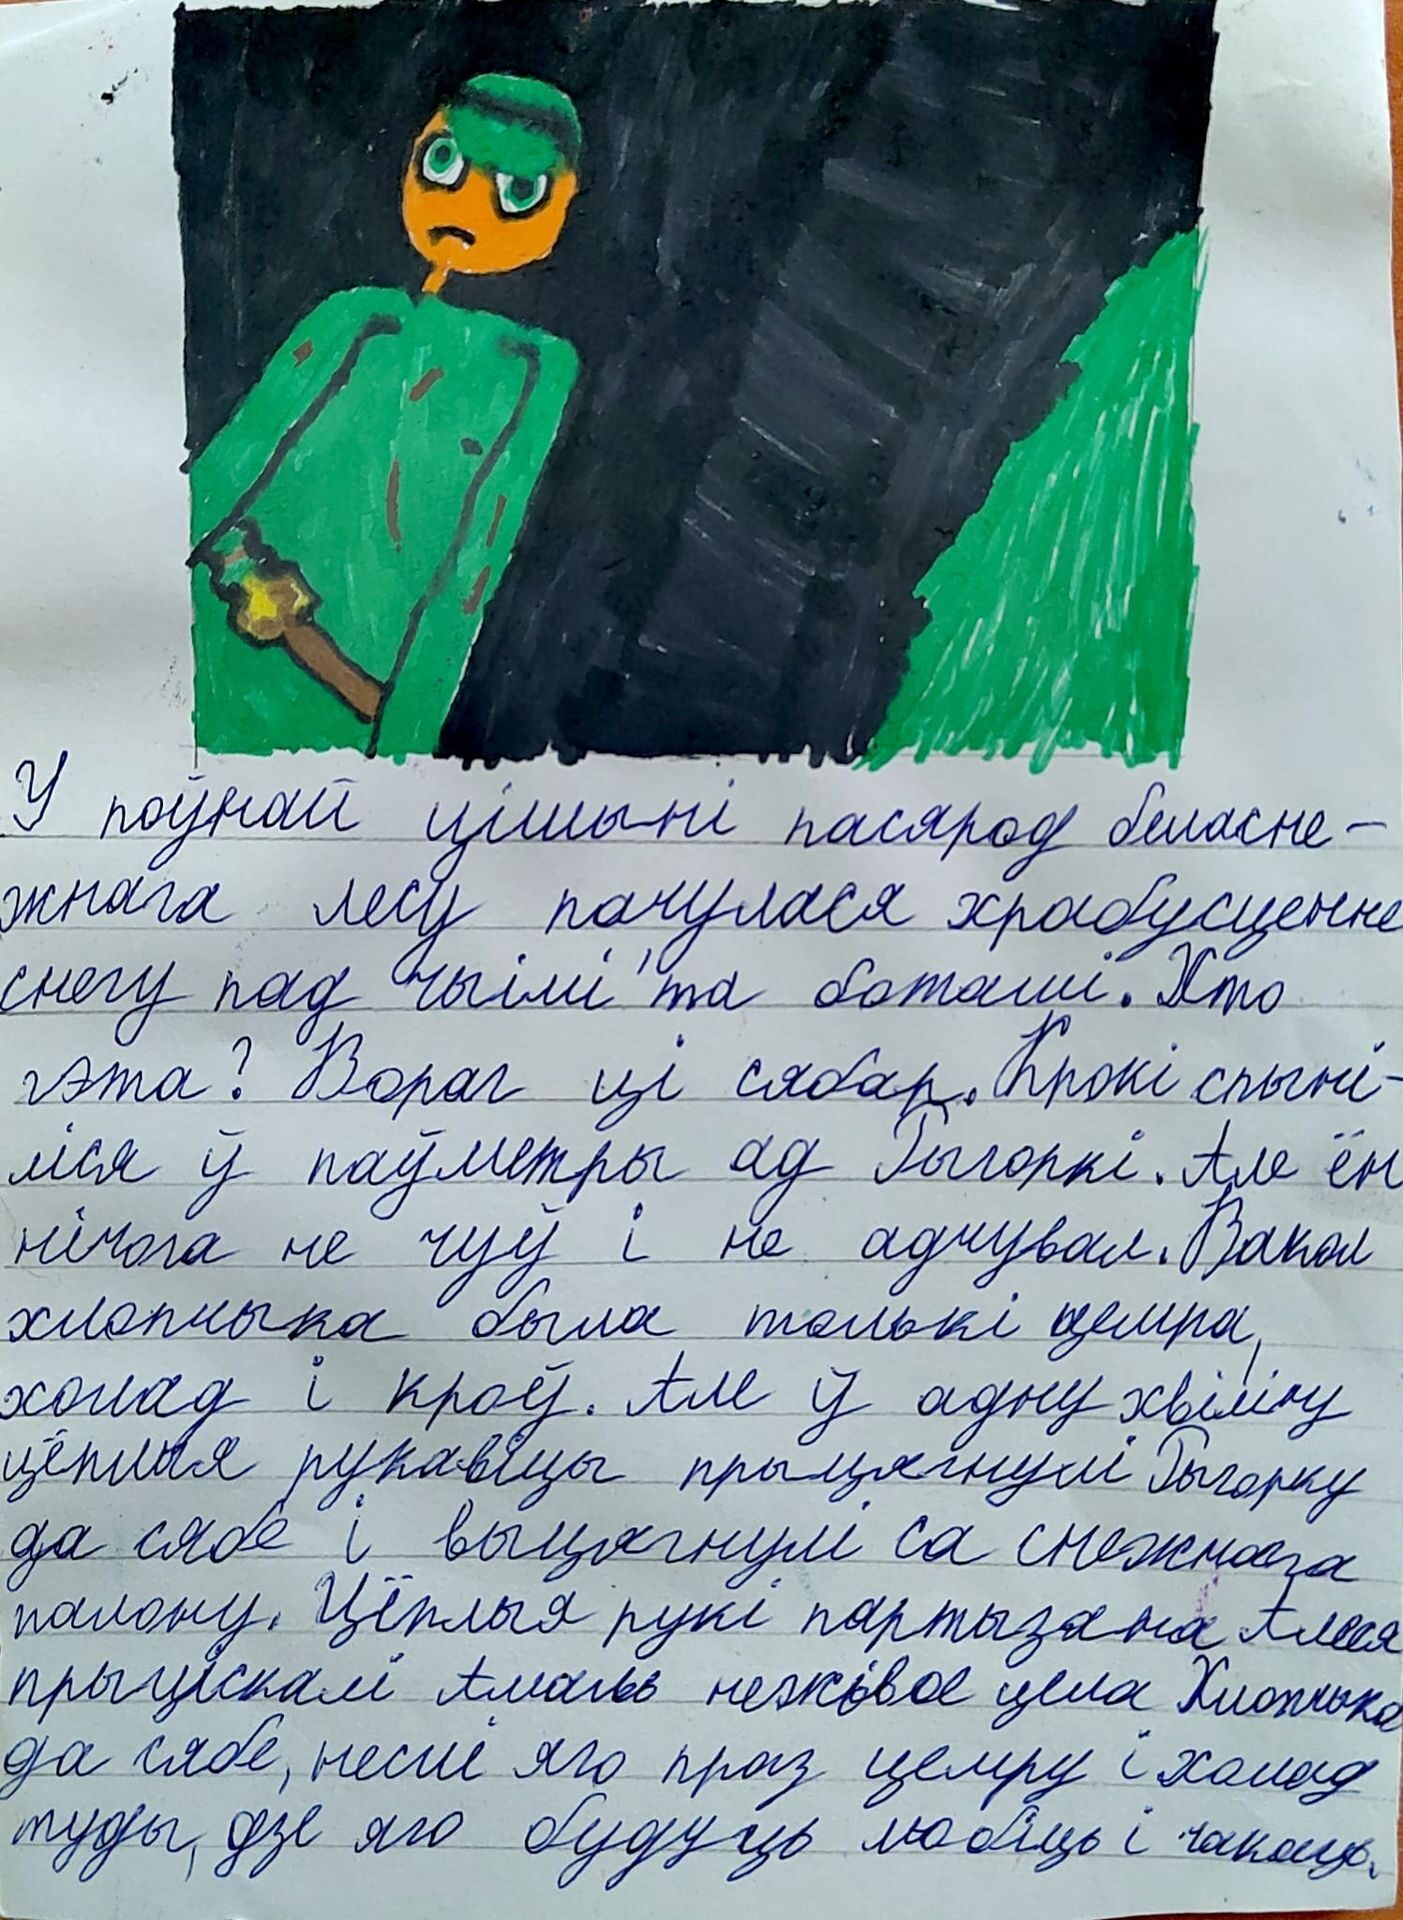 У поўнай цішыні пасярод беласне-
жнага лесу пачулася храбусценне
снегу пад чыімі'та ботамі. Хто
гэта? Вораг ці сябар. Крокі спыні-
ліся ў паўметры ад Рыгоркі. Але ён
нічога не чуў і не адчувал. Вакол
хлопчыка была толькі цемра,
холад і кроў. Але ў адну хвіліну
цёплыя рукавіцы прыцягнулі Рыгорку
да сябе і выцягнулі са снежнага
палону. Цёплыя рукі партызана Алеся
прыціскалі Амаль нежывое цела Хлопчыка
да сябе, неслі яго праз цемру і холад
туды, дзе яго будуць любіць і чакаць.